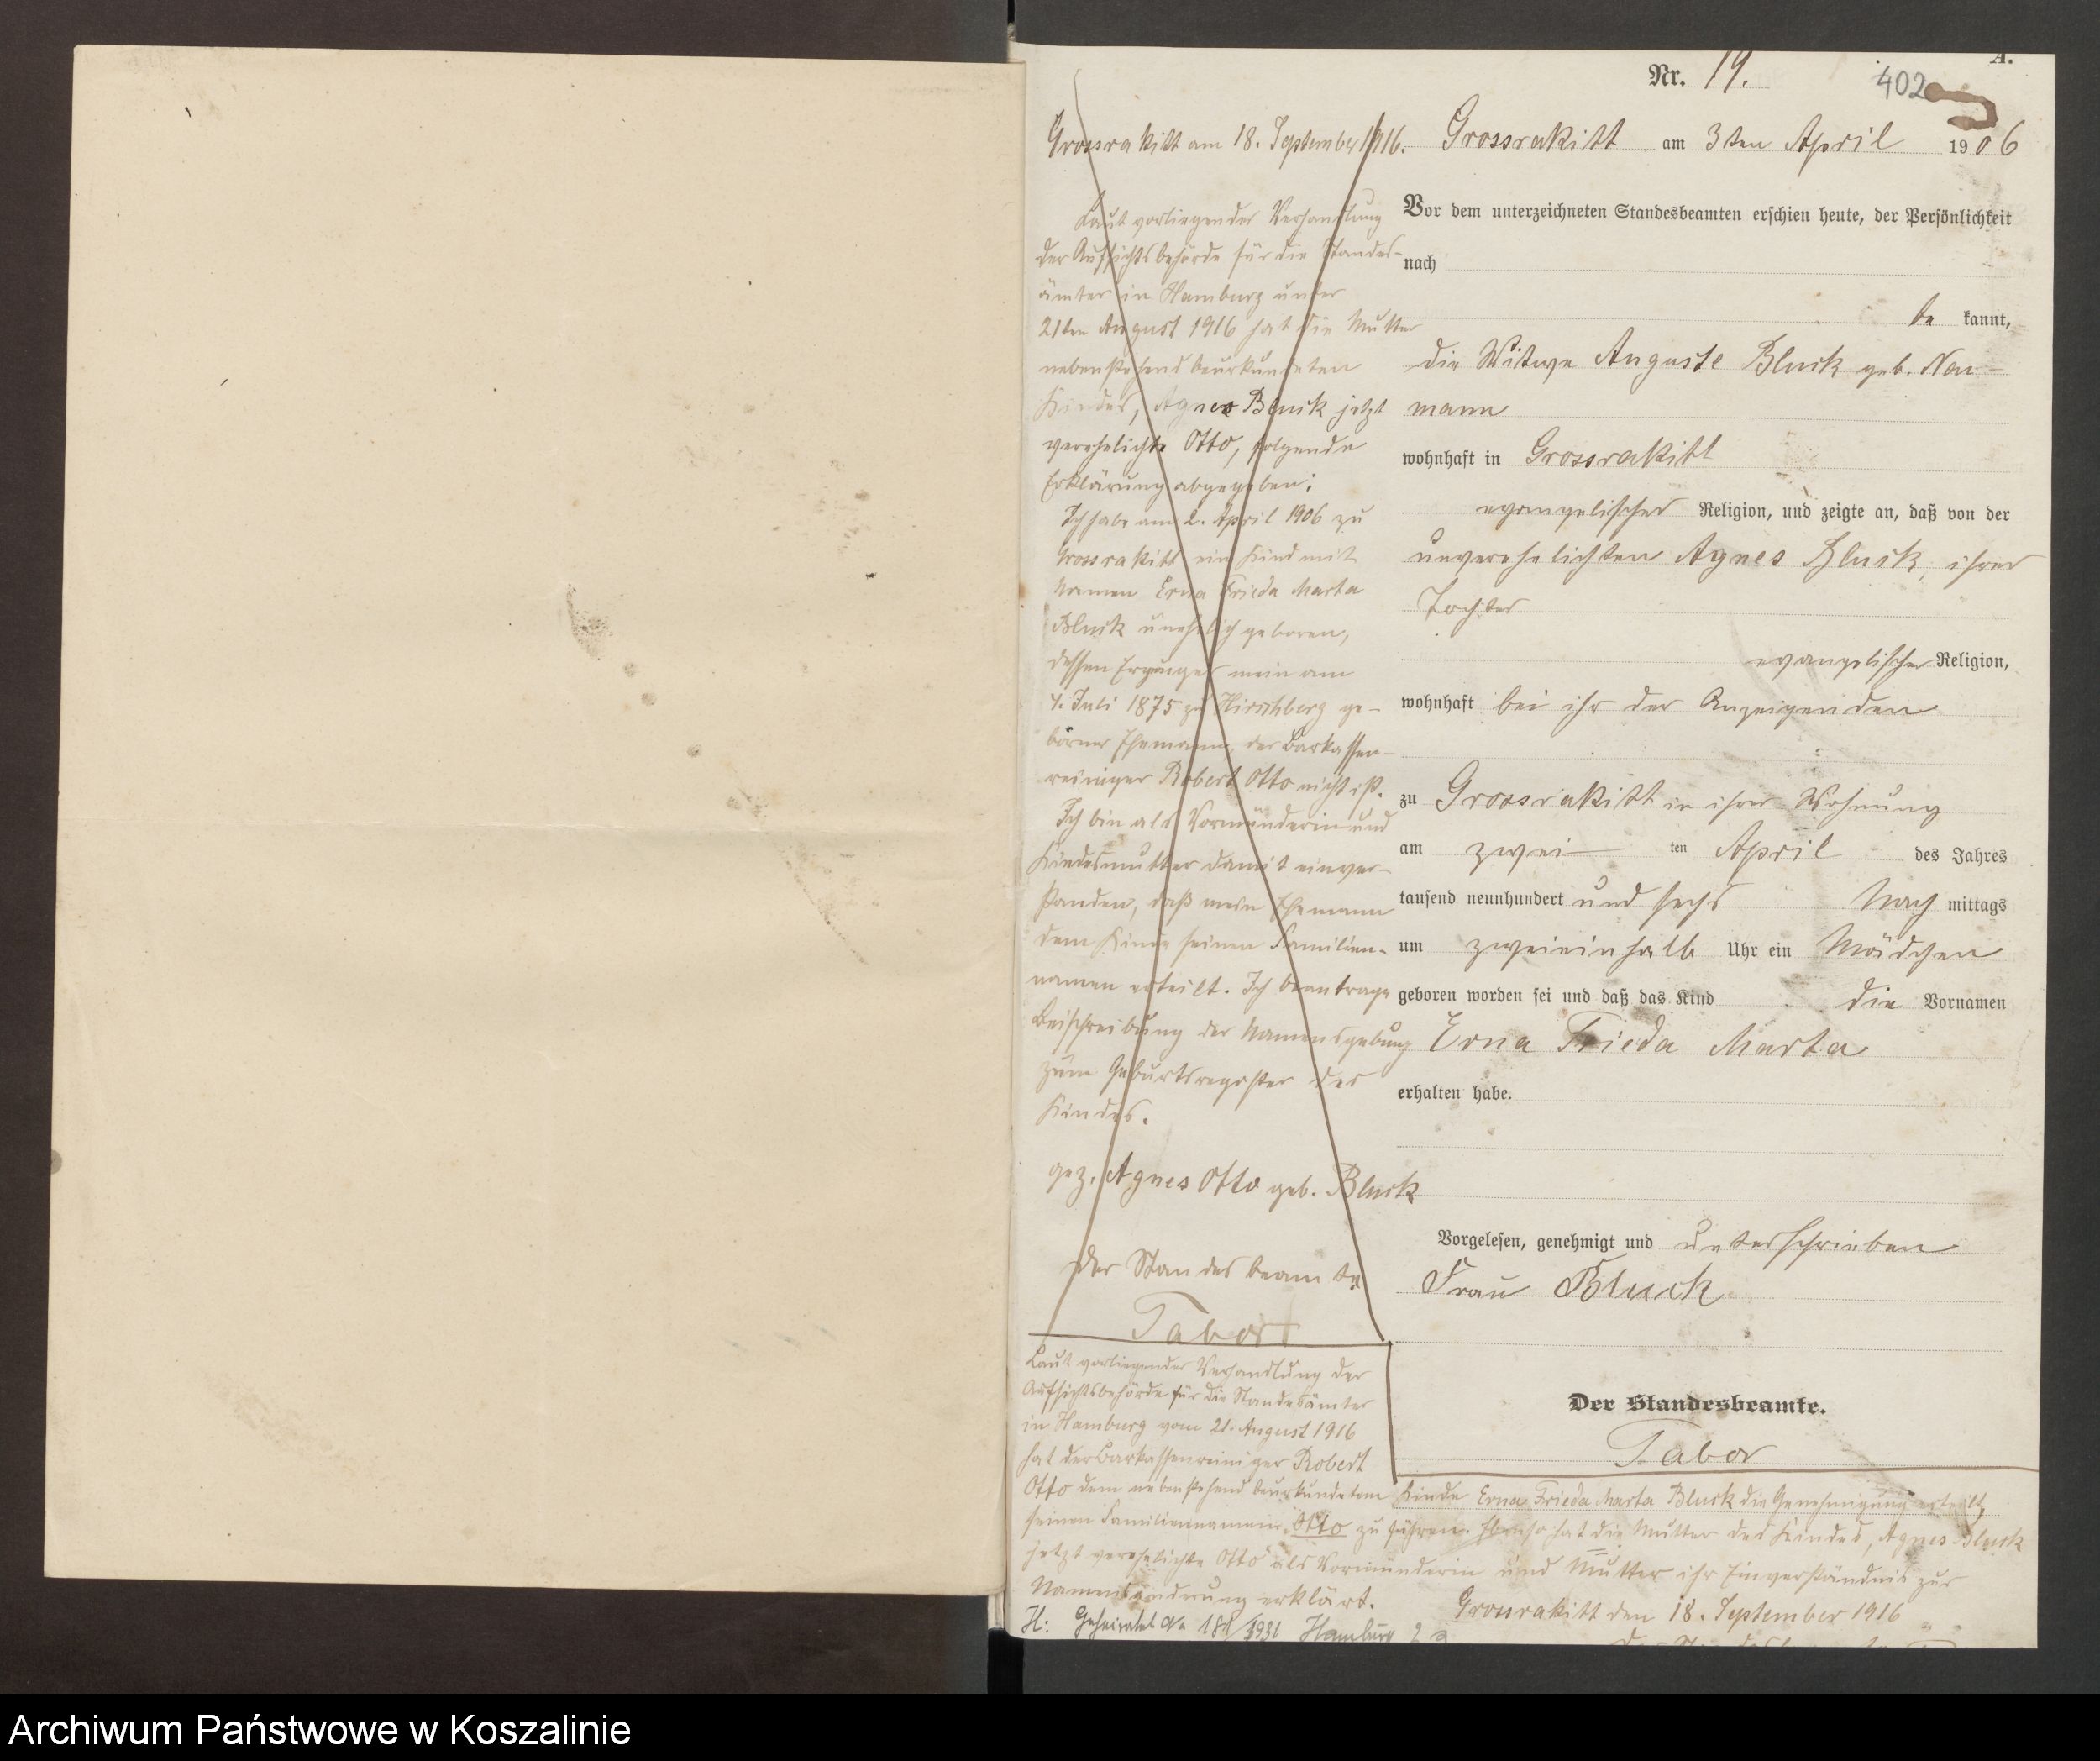 A.
Nr. 19.
402
Grossrakitt am 3ten April 1906
Vor dem unterzeichneten Standesbeamten erschien heute, der Persönlichkeit
nach
be kannt,
die Witwe Auguste Bluck geb. Neu-
mann
wohnhaft in Grossrakitt
evangelischer Religion, und zeigte an, daß von der
unverehelichten Agnes Bluck, ihrer
Tochter
evangelischer Religion,
wohnhaft bei ihr der Anzeigenden
zu Grossrakitt in ihrer Wohnung
am zwei ten April des Jahres
tausend neunhundert und sechs Nach mittags
um zweieinhalb Uhr ein Mädchen
geboren worden sei und daß das Kind die Vornamen
Erna Frieda Marta
erhalten habe.
Vorgelesen, genehmigt und unterschrieben
Frau Bluck
Der Standesbeamte.
Tabor
Grossrakitt am 18. September 1916.
Laut vorliegender Verhandlung
der Aufsichtsbehörde für die Standes-
ämter in Hamburg unter
21ten August 1916 hat die Mutter
nebenstehend beurkundeten
Kindes, Agnes Bluck jetzt
verehelichte Otto, folgende
Erklärung abgegeben:
Ich habe am 2. April 1906 zu
Grossrakitt ein Kind mit
Namen Erna Frieda Marta
Bluck unehelich geboren,
dessen Erzeuger mein am
4. Juli 1875 zu Hirschberg ge-
borner Ehemann, der Barkassen-
reiniger Robert Otto nicht ist.
Ich bin als Vormünderin und
Kindesmutter damit einver-
standen, daß mein Ehemann
dem Kinde seinen Familien-
namen erteilt. Ich beantrage
Beischreibung der Namensgebung
zum Geburtsregister des
Kindes.
gez. Agnes Otto geb. Bluck
Der Standesbeamte
Tabor
Laut vorliegender Verhandlung der
Aufsichtsbehörde für die Standesämter
in Hamburg vom 21. August 1916
hat der Barkassenreiniger Robert
Otto dem nebenstehend beurkundetem Kinde Erna Frieda Marta Bluck die Genehmigung erteilt,
seinen Familiennamen Otto zu führen. Ebenso hat die Mutter des Kindes, Agnes Bluck
jetzt verehelichte Otto als Vormünderin und Mutter ihr Einverständnis zur
Namensänderung erklärt.
Grossrakitt den 18. September 1916
H: Geheiratet Nr 181/1931 Hamburg
Archiwum Państwowe w Koszalinie